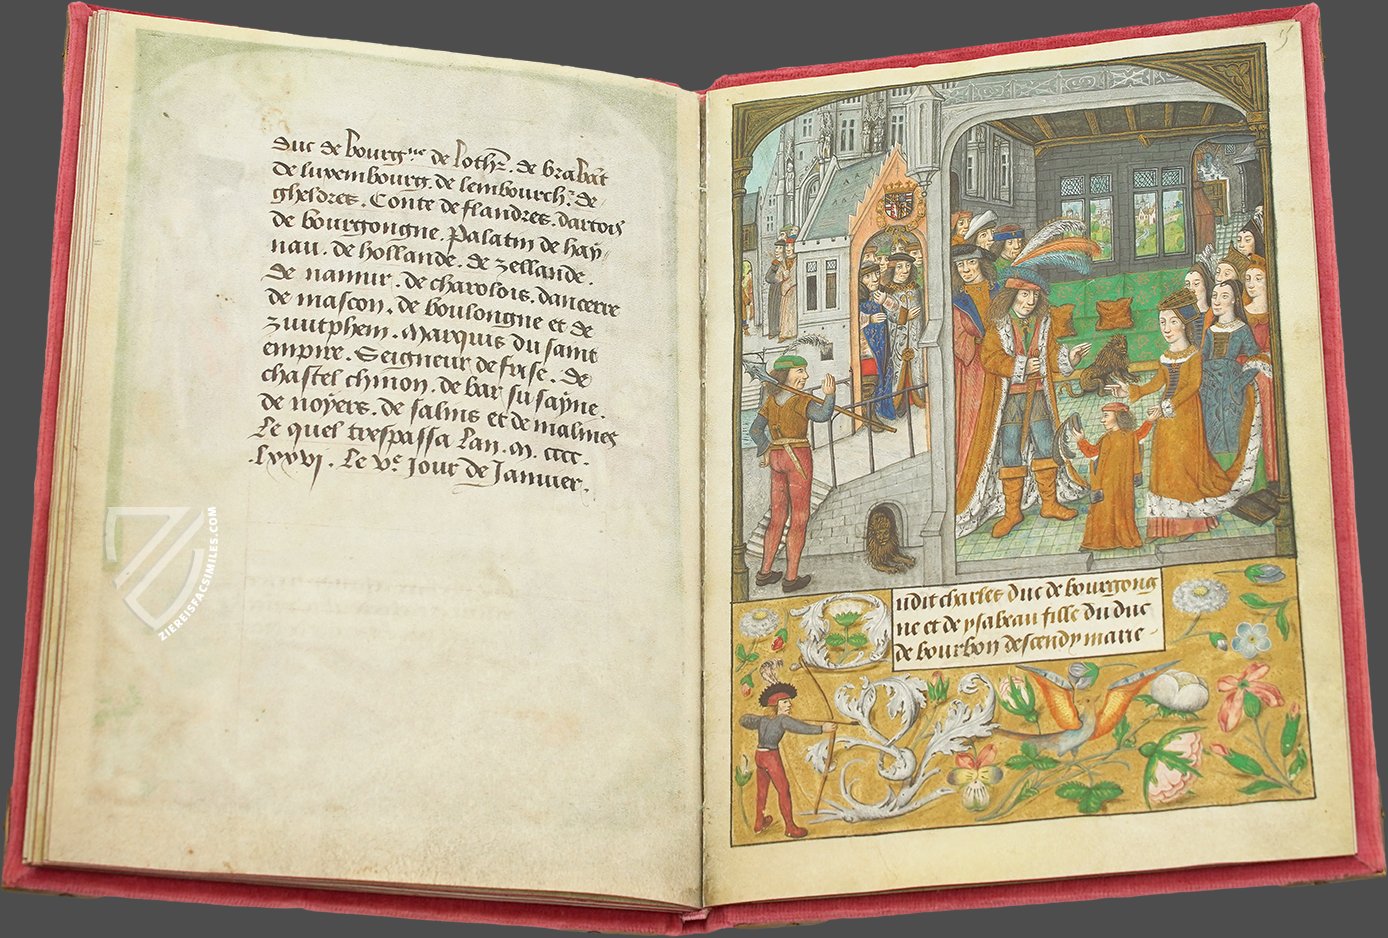 duc de bourgne de lothr. de brabāt
de luxembourg. de lembourch. de
gheldres. Conte de flandres. dartois
de bourgongne. Palatin de hay/
nau. de hollande. de zellande.
de namur. de charolois. dancerre
de mascon. de boulongne et de
zuutphem. Marquis du saint
empire. Seigneur de frise. de
chastel chinon. de bar su sayne.
de noyers. de salins et de malines
Le quel trespassa Lan. M. cccc.
.lxxvi. Le ve Jour de Januier.
ZIEREISFACSIMILES.COM
5
Dudit charles duc de bourgong
ne et de ysabeau fille du duc
de bourbon descendy marie